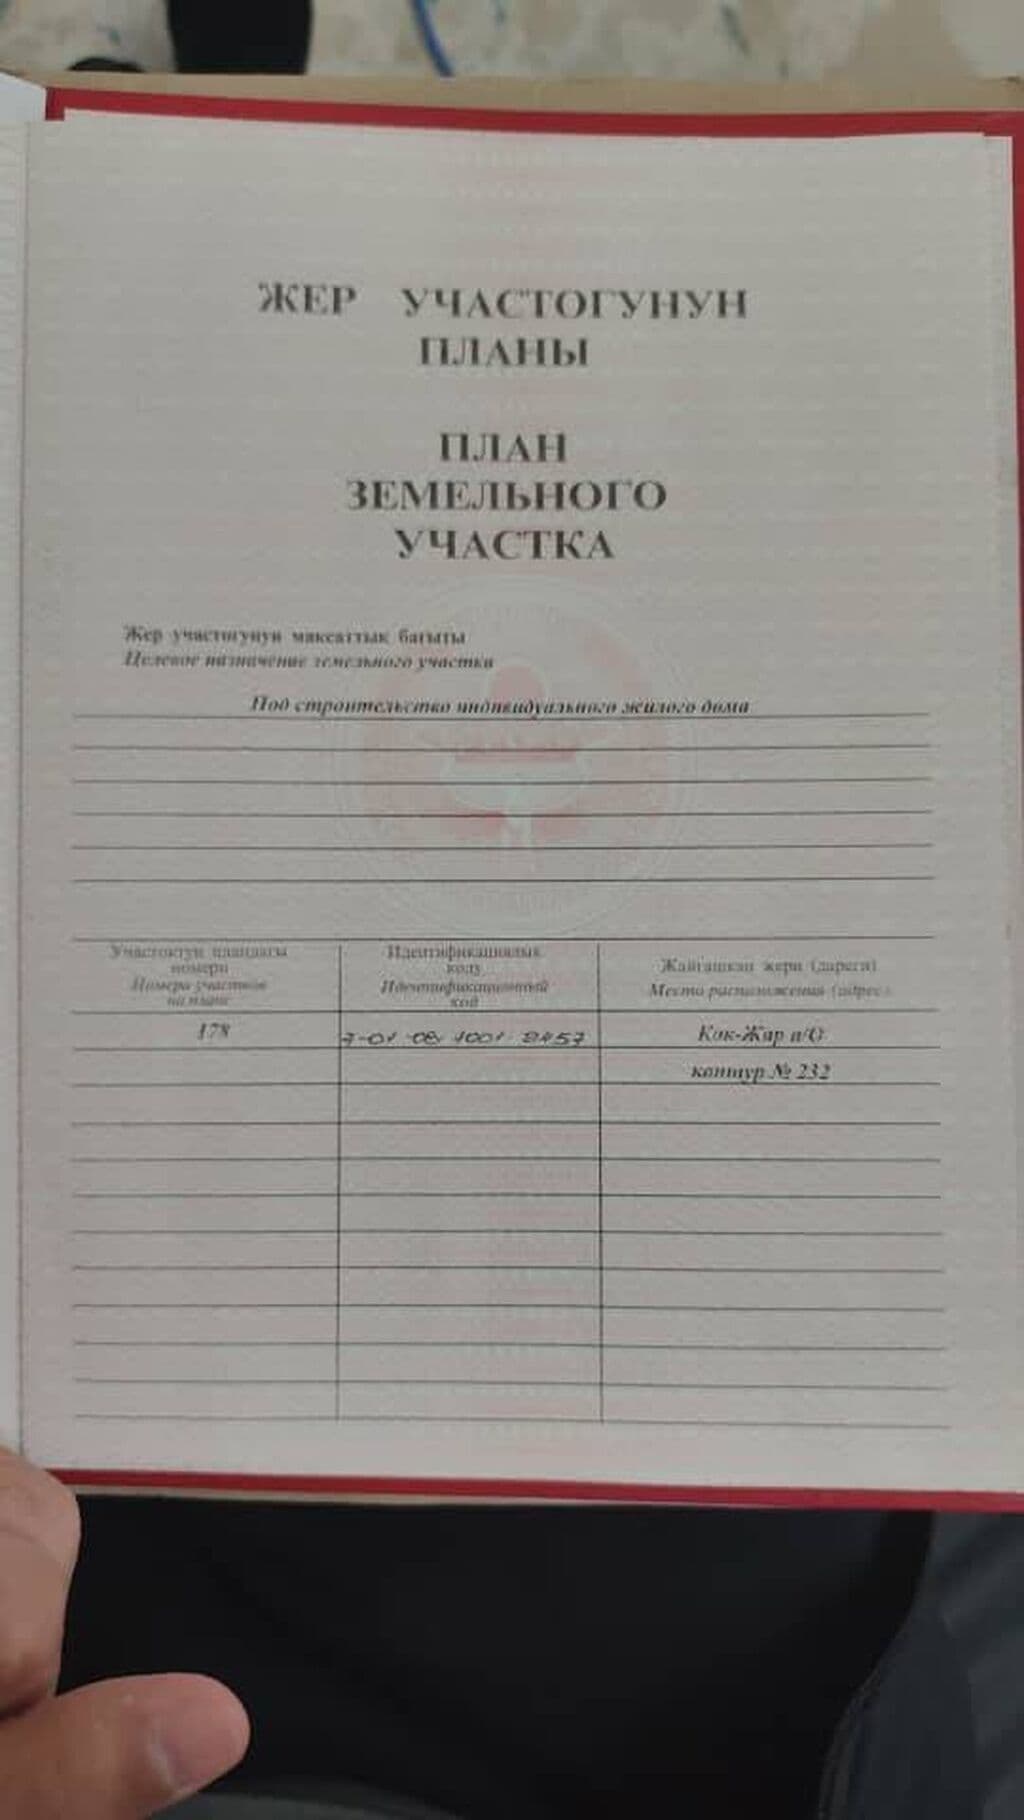 ЖЕР УЧАСТОГУНУН
ПЛАНЫ
ПЛАН
ЗЕМЕЛЬНОГО
УЧАСТКА
Жер участогунун максаттык багыты
Целевое назначение земельного участка
Под строительство индивидуального жилого дома
Участоктун пландагы
номери
Номера участков
на плане
Идентификациялык
коду
Идентификационный
код
Жайгашкан жери (дареги)
Место расположения (адрес)
178
7-01-08-1001-2457
Кок-Жар а/О
контур № 232